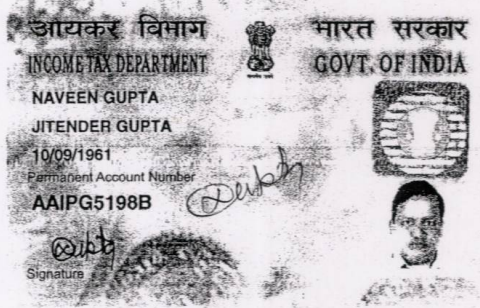 आयकर विभाग
भारत सरकार
INCOME TAX DEPARTMENT
GOVT. OF INDIA
NAVEEN GUPTA
JITENDER GUPTA
10/09/1961
Permanent Account Number
AAIPG5198B
Signature